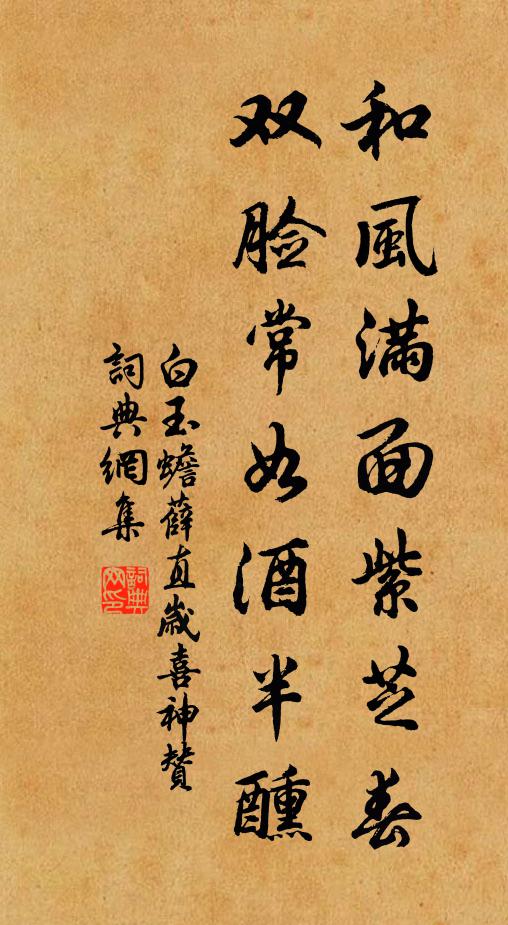 和風满面紫芝春
双脸常如酒半醺
白玉蟾薛直歲喜神赞
詞典網集
詞典网印